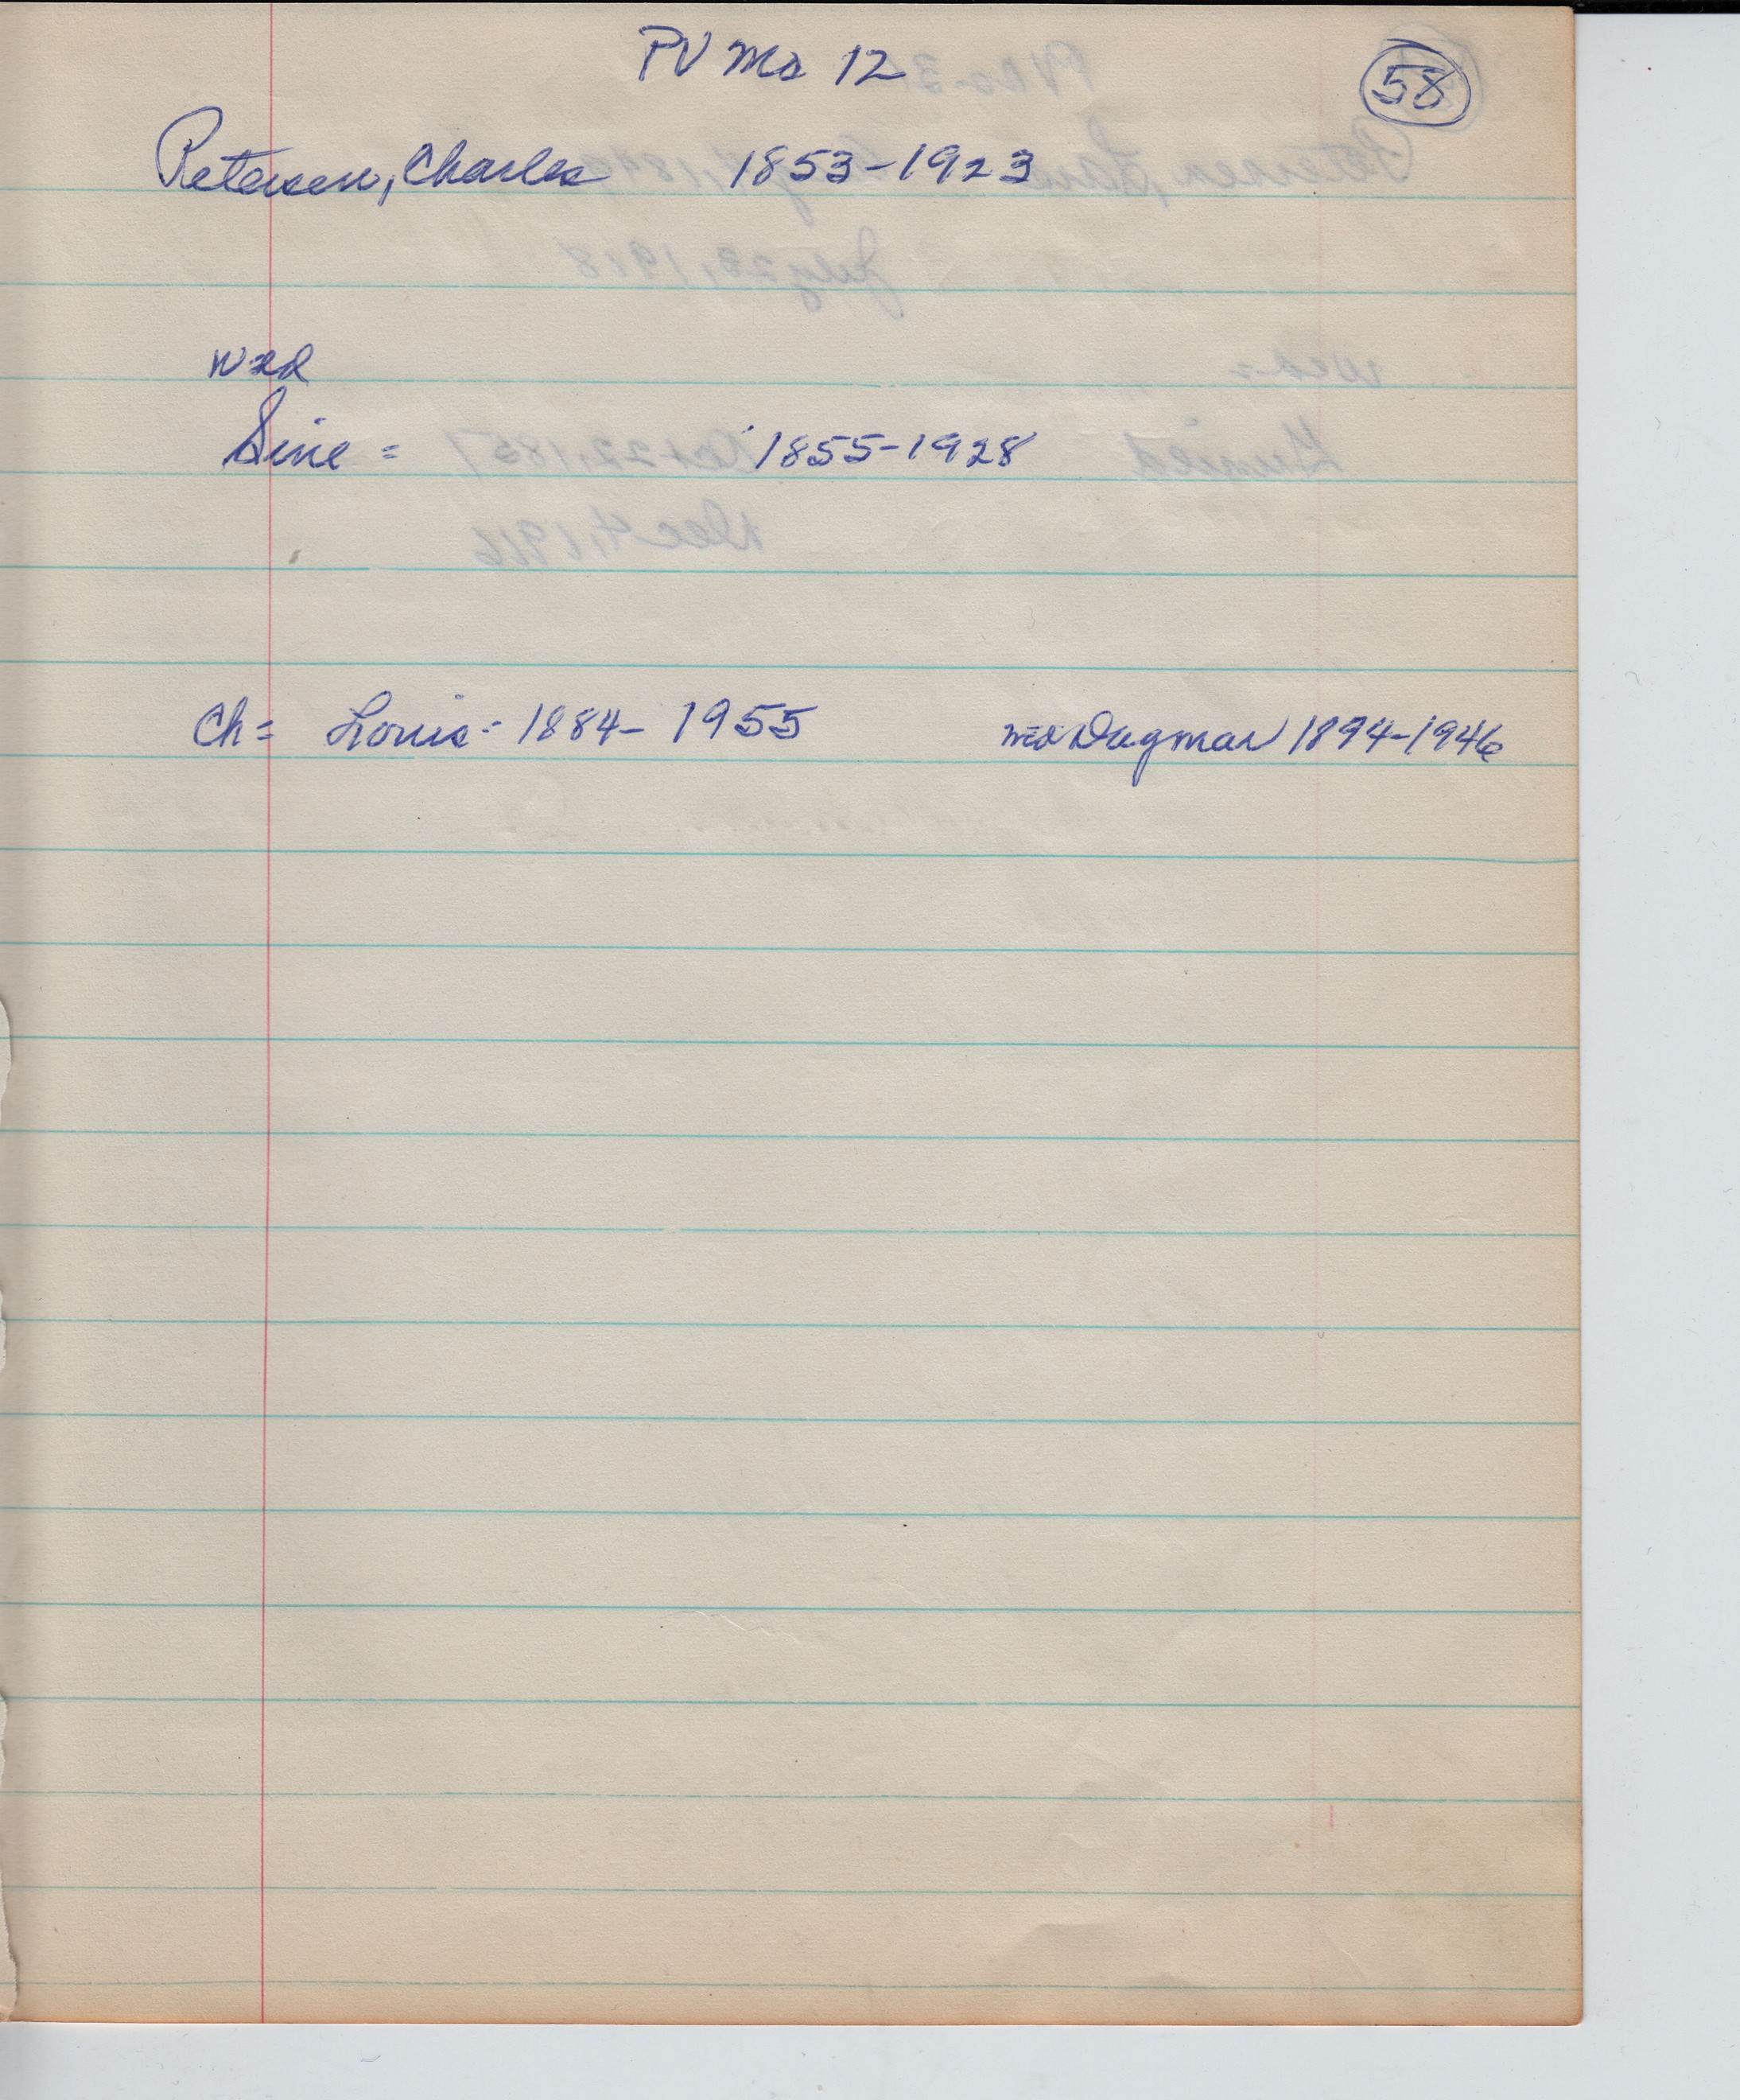 PV Ma 12
58
Petersen, Charles 1853-1923
wed
Sine = 1855-1928
Ch= Louis- 1884- 1955 wed Dagmar 1894-1946